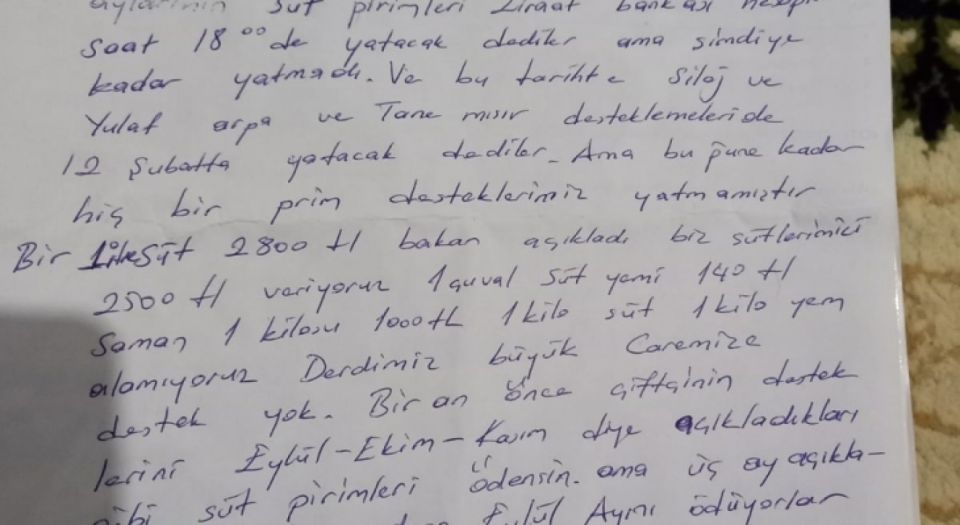 aylarının süt pirimleri Ziraat bankası
saat 18⁰⁰ de yatacak dediler ama şimdiye
kadar yatmadı. Ve bu tarihte Silaj ve
Yulaf arpa ve Tane mısır desteklemeleride
12 Şubatta yatacak dediler. Ama bu güne kadar
hiç bir prim desteklerimiz yatmamıştır
Bir litre Süt 2800 tl bakan açıkladı biz sütlerimizi
2500 tl veriyoruz 1 çuval süt yemi 140 tl
Saman 1 kilosu 1000 tL 1 kilo süt 1 kilo yem
alamıyoruz Derdimiz büyük Caremize
destek yok. Bir an önce çiftçinin destek
lerini Eylül-Ekim-Kasım diye açıkladıkları
gibi süt pirimleri ödensin. ama üç ay açıkla-
Eylül Aynı ödüyorlar